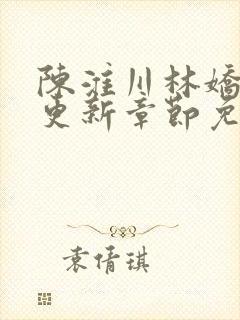 陳淮川林嬌
更新章節免
袁倩琪